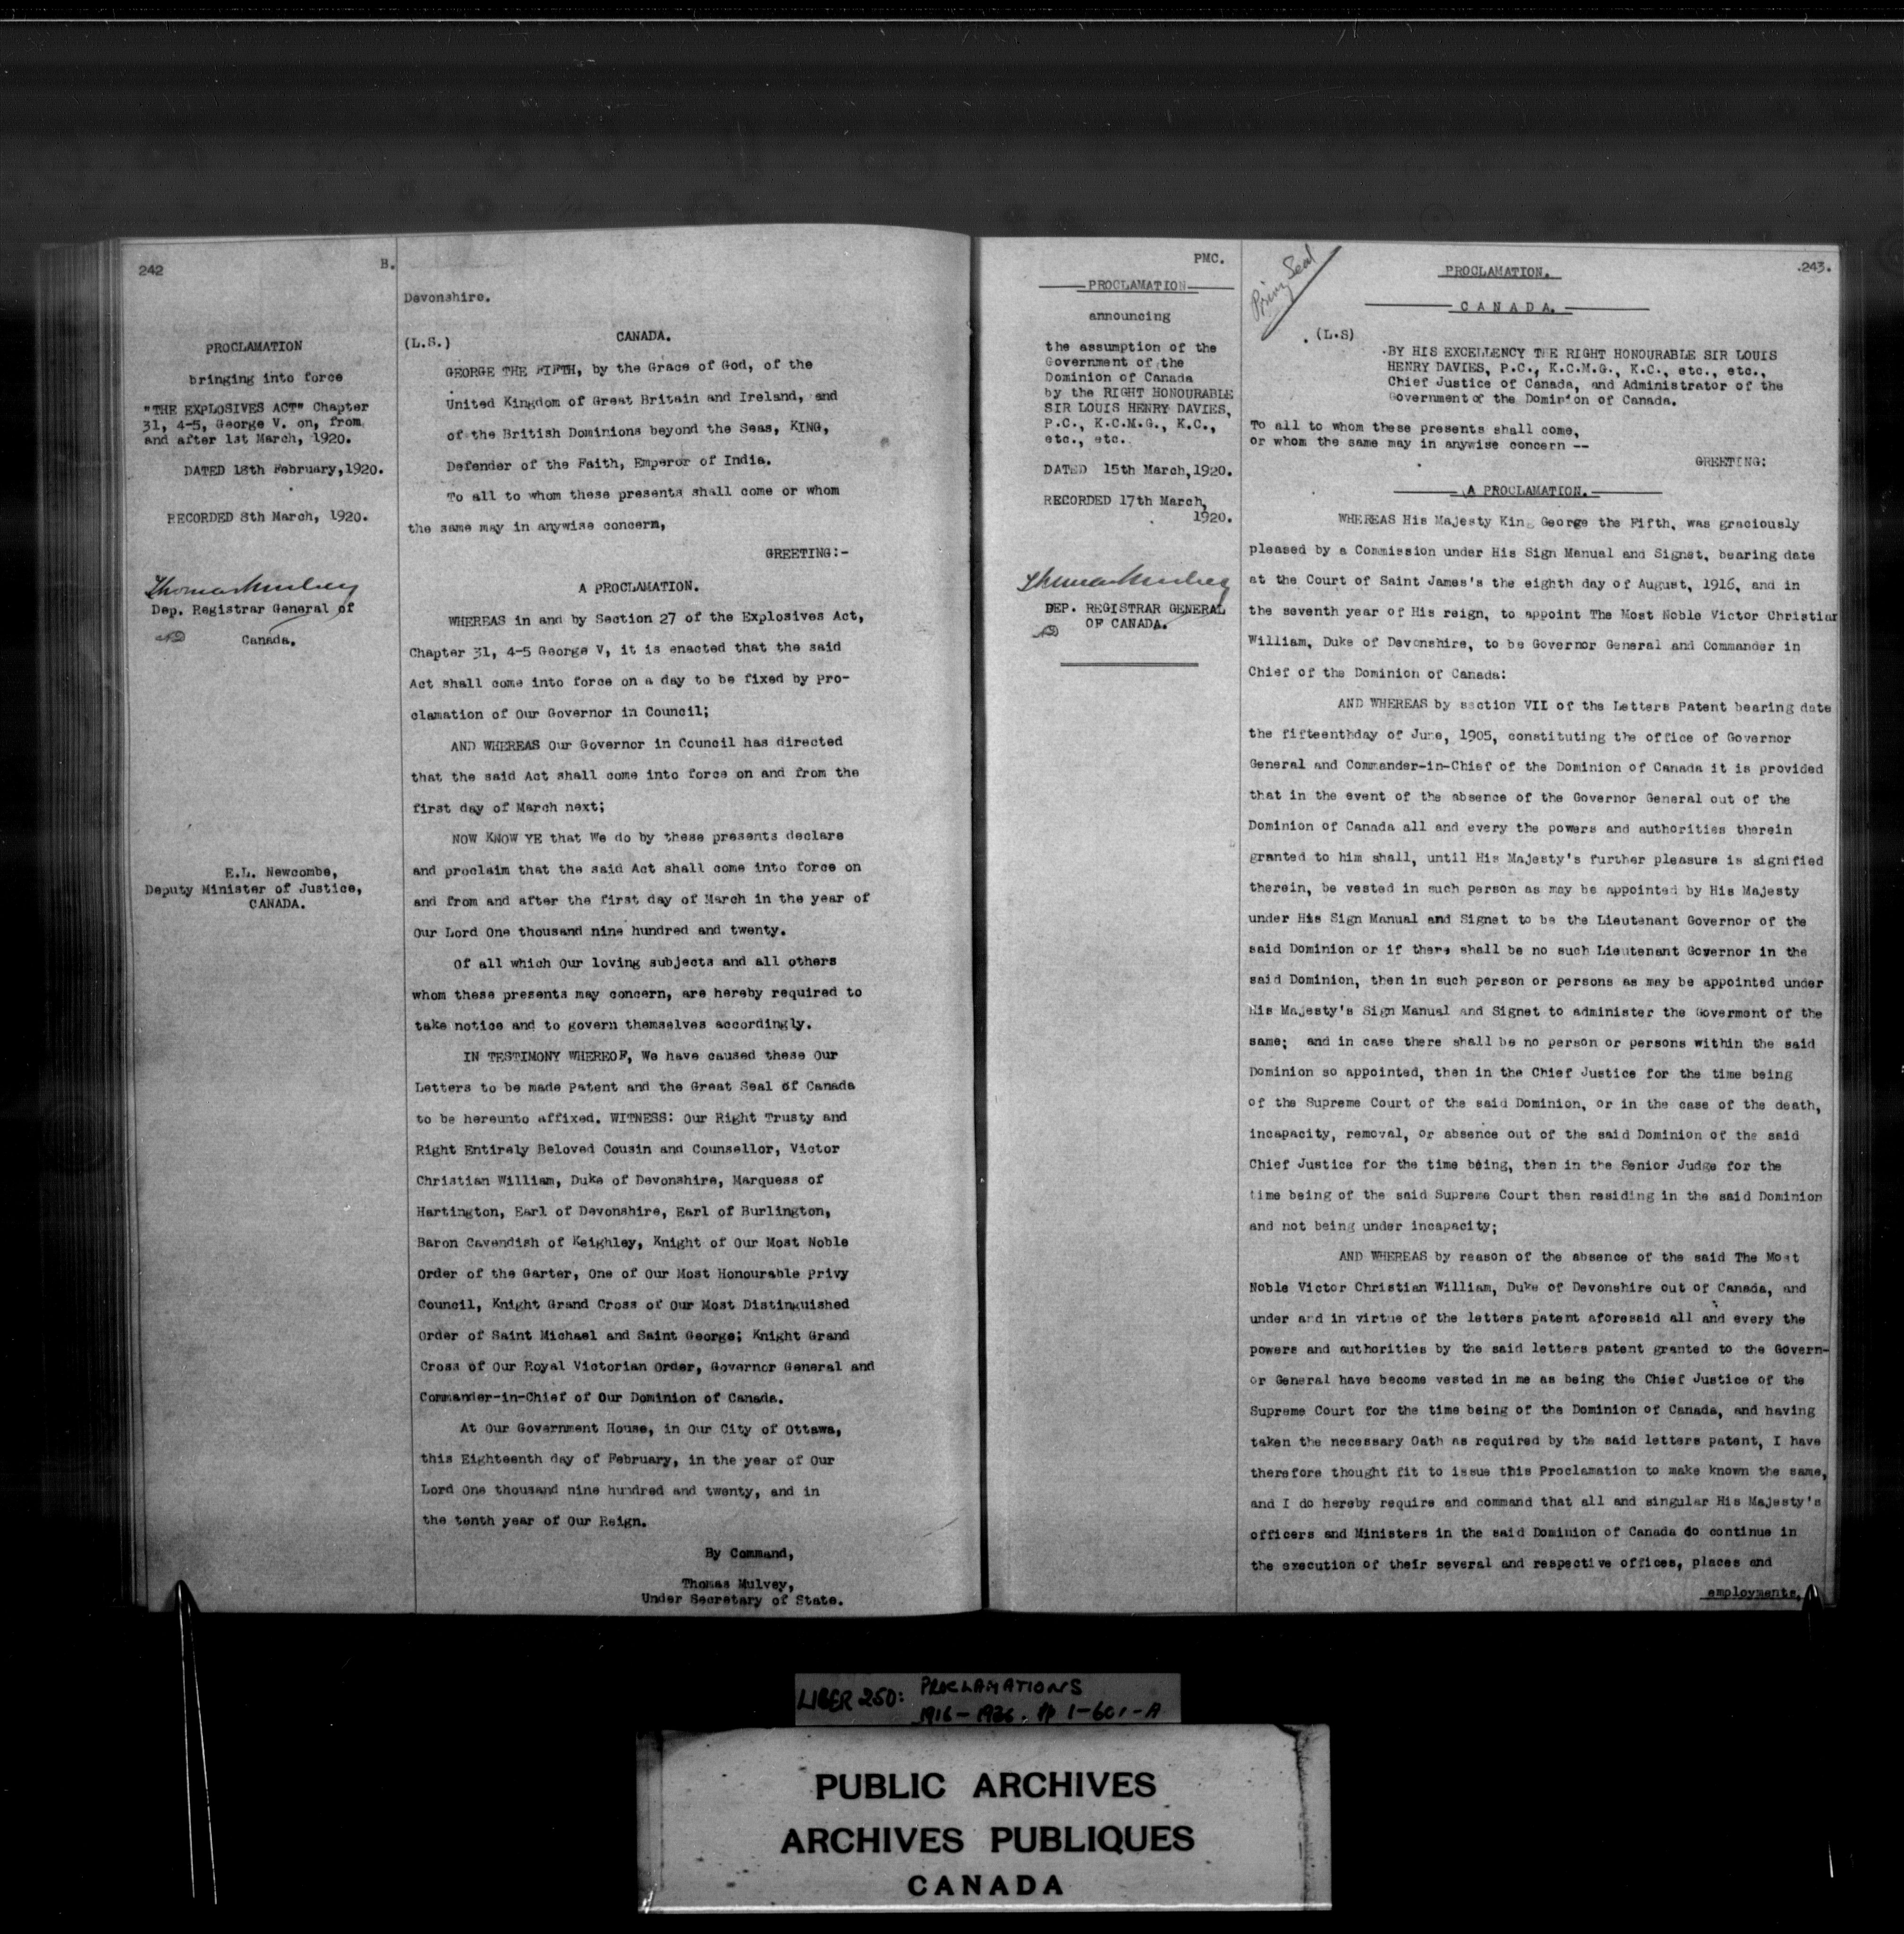 242
B.
PROCLAMATION
bringing into force
"THE EXPLOSIVES ACT" Chapter
31, 4-5, George V. on, from
and after 1st March, 1920.
DATED 18th February,1920.
RECORDED 8th March, 1920.
Thomas Mulvey
Dep. Registrar General of
Canada.
E.L. Newcombe,
Deputy Minister of Justice,
CANADA.
Devonshire.
(L.S.)
CANADA.
GEORGE THE FIFTH, by the Grace of God, of the
United Kingdom of Great Britain and Ireland, and
of the British Dominions beyond the Seas, KING,
Defender of the Faith, Emperor of India.
To all to whom these presents shall come or whom
the same may in anywise concern,
GREETING:-
A PROCLAMATION.
WHEREAS in and by Section 27 of the Explosives Act,
Chapter 31, 4-5 George V, it is enacted that the said
Act shall come into force on a day to be fixed by pro-
clamation of Our Governor in Council;
AND WHEREAS Our Governor in Council has directed
that the said Act shall come into force on and from the
first day of March next;
NOW KNOW YE that We do by these presents declare
and proclaim that the said Act shall come into force on
and from and after the first day of March in the year of
Our Lord One thousand nine hundred and twenty.
Of all which Our loving subjects and all others
whom these presents may concern, are hereby required to
take notice and to govern themselves accordingly.
IN TESTIMONY WHEREOF, We have caused these Our
Letters to be made Patent and the Great Seal of Canada
to be hereunto affixed. WITNESS: Our Right Trusty and
Right Entirely Beloved Cousin and Counsellor, Victor
Christian William, Duke of Devonshire, Marquess of
Hartington, Earl of Devonshire, Earl of Burlington,
Baron Cavendish of Keighley, Knight of Our Most Noble
Order of the Garter, One of Our Most Honourable Privy
Council, Knight Grand Cross of Our Most Distinguished
Order of Saint Michael and Saint George; Knight Grand
Cross of Our Royal Victorian Order, Governor General and
Commander-in-Chief of Our Dominion of Canada.
At Our Government House, in Our City of Ottawa,
this Eighteenth day of February, in the year of Our
Lord One thousand nine hundred and twenty, and in
the tenth year of Our Reign.
By Command,
Thomas Mulvey,
Under Secretary of State.
PMC.
PROCLAMATION
announcing
the assumption of the
Government of the
Dominion of Canada
by the RIGHT HONOURABLE
SIR LOUIS HENRY DAVIES,
P.C., K.C.M.G., K.C.,
etc., etc.
DATED 15th March,1920.
RECORDED 17th March,
1920.
Thomas Mulvey
DEP. REGISTRAR GENERAL
OF CANADA.
Privy Seal
PROCLAMATION.
.243.
C A N A D A.
(L.S)
BY HIS EXCELLENCY THE RIGHT HONOURABLE SIR LOUIS
HENRY DAVIES, P.C., K.C.M.G., K.C., etc., etc.,
Chief Justice of Canada, and Administrator of the
Government of the Dominion of Canada.
To all to whom these presents shall come,
or whom the same may in anywise concern --
GREETING:
A PROCLAMATION.
WHEREAS His Majesty King George the Fifth, was graciously
pleased by a Commission under His Sign Manual and Signet, bearing date
at the Court of Saint James's the eighth day of August, 1916, and in
the seventh year of His reign, to appoint The Most Noble Victor Christian
William, Duke of Devonshire, to be Governor General and Commander in
Chief of the Dominion of Canada:
AND WHEREAS by section VII of the Letters Patent bearing date
the fifteenthday of June, 1905, constituting the office of Governor
General and Commander-in-Chief of the Dominion of Canada it is provided
that in the event of the absence of the Governor General out of the
Dominion of Canada all and every the powers and authorities therein
granted to him shall, until His Majesty's further pleasure is signified
therein, be vested in such person as may be appointed by His Majesty
under His Sign Manual and Signet to be the Lieutenant Governor of the
said Dominion or if there shall be no such Lieutenant Governor in the
said Dominion, then in such person or persons as may be appointed under
His Majesty's Sign Manual and Signet to administer the Goverment of the
same; and in case there shall be no person or persons within the said
Dominion so appointed, then in the Chief Justice for the time being
of the Supreme Court of the said Dominion, or in the case of the death,
incapacity, removal, or absence out of the said Dominion of the said
Chief Justice for the time being, then in the Senior Judge for the
time being of the said Supreme Court then residing in the said Dominion
and not being under incapacity;
AND WHEREAS by reason of the absence of the said The Most
Noble Victor Christian William, Duke of Devonshire out of Canada, and
under and in virtue of the letters patent aforesaid all and every the
powers and authorities by the said letters patent granted to the Govern-
or General have become vested in me as being the Chief Justice of the
Supreme Court for the time being of the Dominion of Canada, and having
taken the necessary Oath as required by the said letters patent, I have
therefore thought fit to issue this Proclamation to make known the same,
and I do hereby require and command that all and singular His Majesty's
officers and Ministers in the said Dominion of Canada do continue in
the execution of their several and respective offices, places and
employments,
LIBER 250: PROCLAMATIONS
1916-1936. pp 1-601-A
PUBLIC ARCHIVES
ARCHIVES PUBLIQUES
CANADA